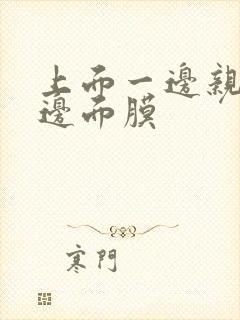 上而一邊親
邊而膜
寒門